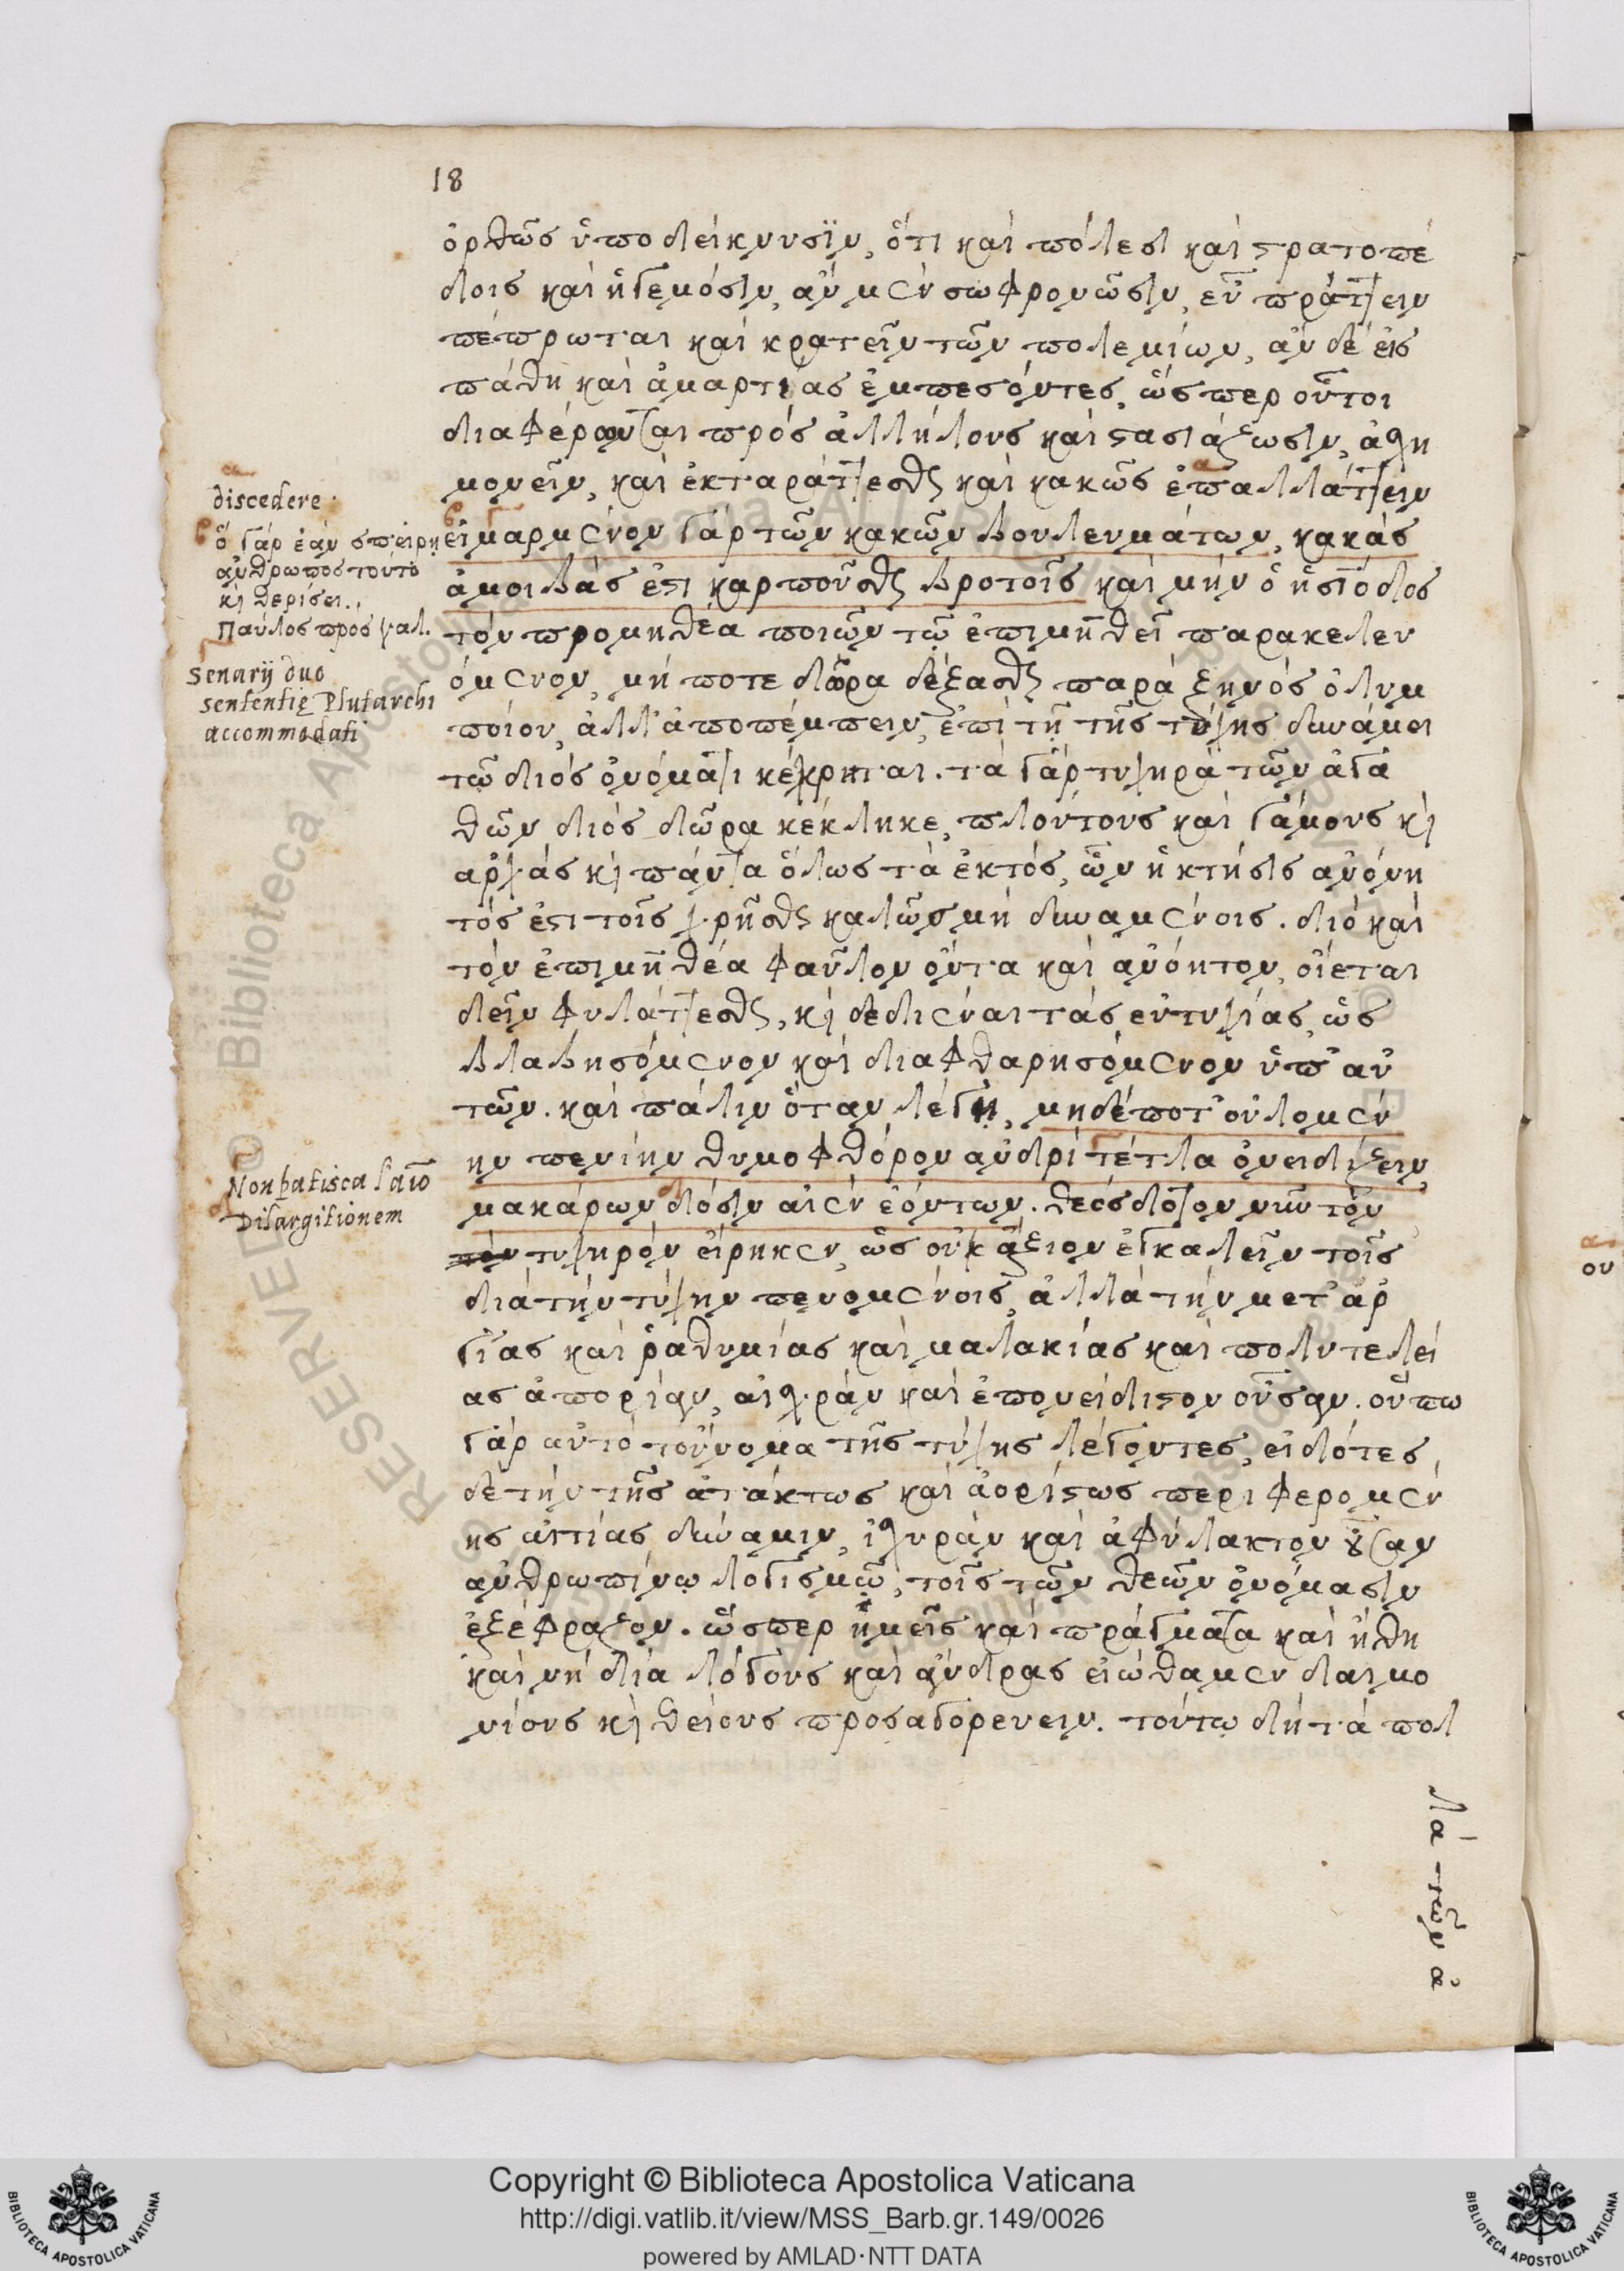 18
ὀρθῶς ὑποδείκνυσϊν, ὅτι καὶ πόλεσι καὶ στρατοπέ
δοις καὶ ἡγεμόσιν, ἂν μὲν σωφρονῶσιν, εὖ πράττειν
πέπρωται καὶ κρατεῖν τῶν πολεμίων, ἂν δὲ εἰς
πάθη καὶ ἁμαρτίας ἐμπεσόντες, ὥσπερ οὗτοι
διαφέρωνται πρὸς ἀλλήλους καὶ στασιάζωσιν, ἀσχη
μονεῖν, καὶ ἐκταράττεσθαι καὶ κακῶς ἐπαλλάττειν
εἱμαρμένον γὰρ τῶν κακῶν βουλευμάτων, κακὰς
ἀμοιβὰς ἐστὶ καρποῦσθαι βροτοῖς καὶ μὴν ὁ ἡσΐοδος
τὸν προμηθέα ποιῶν τῷ ἐπιμηθεῖ παρακελευ
όμενον, μή ποτε δῶρα δέξασθαι παρὰ ζηνὸς ὀλυμ
ποίου, ἀλλ' ἀποπέμπειν, ἐπὶ τῇ τῆς τύχης δυνάμει
τῷ διὸς ὀνόματι κέχρηται. τὰ γὰρ τυχηρὰ τῶν ἀγα
θῶν διὸς δῶρα κέκληκε, πλούτους καὶ γάμους κὶ
αρχὰς κὶ πάντα ὅλως τὰ ἐκτός, ὧν ἡ κτῆσις ανόνη
τός ἐστι τοῖς χρῆσθαι καλῶς μὴ δυναμένοις. διὸ καὶ
τὸν ἐπιμηθέα φαῦλον ὄντα καὶ ανόητον, οἴεται
δεῖν φυλάττεσθαι, κὶ δεδιέναι τὰς εὐτυχίας, ὡς
βλαβησόμενον καὶ διαφθαρησόμενον ὑπ' αὐ
τῶν. καὶ πάλιν ὅταν λέγῃ, μηδέποτ' οὐλομέν
ην πενίην θυμοφθόρον ανδρὶ τέτλα ὀνειδίζειν,
μακάρων δόσιν αἰὲν ἐόντων. θεόσδοτον νῦν τὸν
τυχηρὸν εἴρηκεν, ὡς οὐκ ἄξιον ἐγκαλεῖν τοῖς
διὰ τὴν τύχην πενομένοις, ἀλλὰ τὴν μετ' ἀρ
γΐας καὶ ῥαθυμίας καὶ μαλακίας καὶ πολυτελεί
ας ἀπορίαν, αἰσχρὰν καὶ ἐπονείδιστον οὖσαν. οὔπω
γὰρ αὐτὸ τοὔνομα τῆς τύχης λέγοντες, εἰδότες
δὲ τὴν τῆς ἀτάκτως καὶ ἀορίστως περιφερομέν
ης αἰτίας δύναμιν, ἰσχυρὰν καὶ ἀφύλακτον οὖσαν
ανθρωπίνῳ λογισμῷ, τοῖς τῶν θεῶν ὀνόμασιν
ἐξέφραζον. ὥσπερ ἡμεῖς καὶ πράγματα καὶ ἤθη
καὶ νὴ δία λόγους καὶ ἄνδρας εἰώθαμεν δαιμο
νίους κὶ θείους προσαγορεύειν. τούτῳ δὴ τὰ πολ
λὰ τῶν ἀ
discedere
ὃ γὰρ ἐὰν σπείρῃ
ανθρωπος τουτο
κὶ θερίσει.
Παύλος πρὸς γαλ.
Senarij duo
sententię Plutarchi
accommodati
Non patisca
Dilargitionem
ου
Copyright © Biblioteca Apostolica Vaticana
http://digi.vatlib.it/view/MSS_Barb.gr.149/0026
powered by AMLAD·NTT DATA
BIBLIOTECA APOSTOLICA VATICANA
BIBLIOTECA APOSTOLICA VATICANA